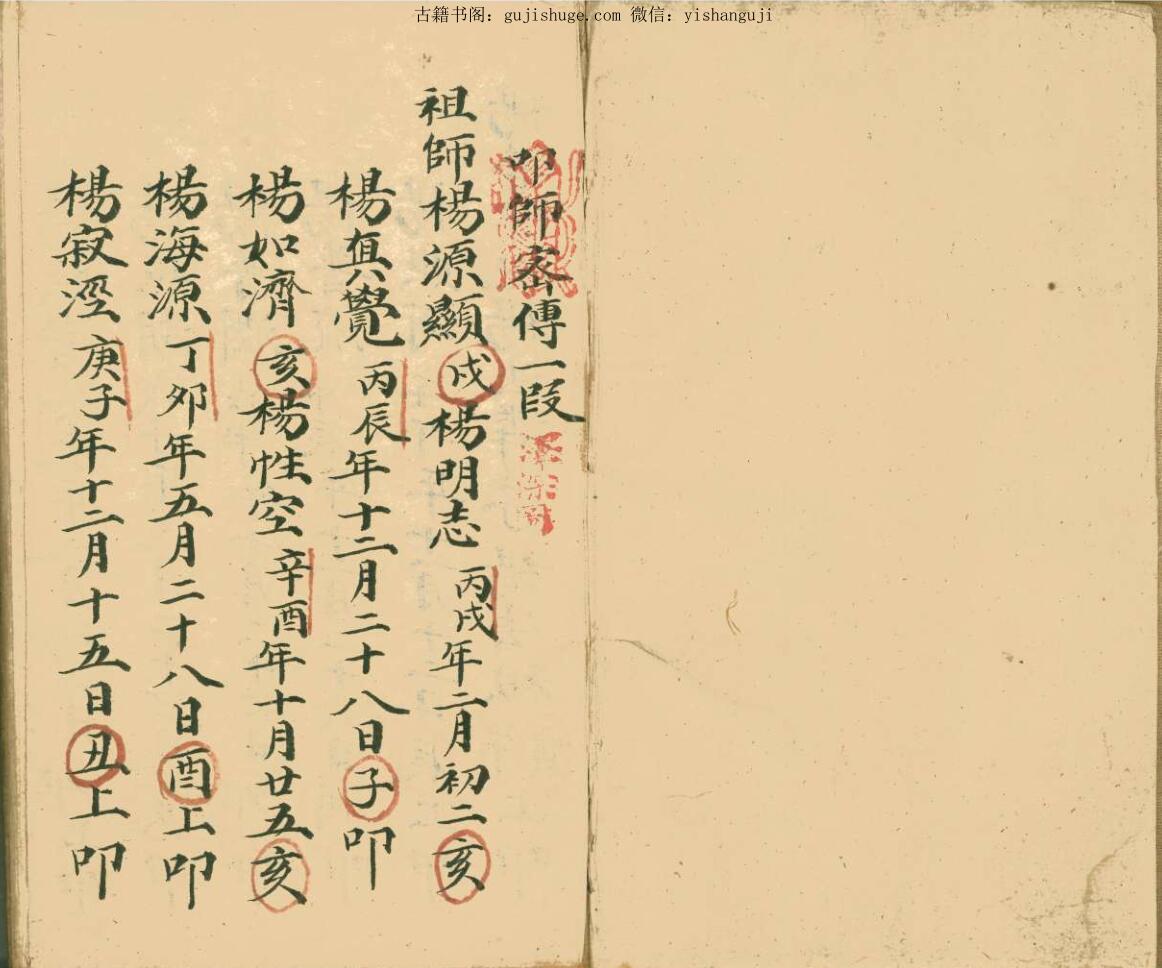 古籍书阁：gujishuge.com 微信：yishanguji
叩師宻傳一段
祖師楊源顯戌楊明志丙戌年二月初二亥
楊真覺丙辰年十二月二十八日子叩
楊如濟亥楊性空辛酉年十月廿五亥
楊海源丁夘年五月二十八日酉上叩
楊寂涇庚子年十二月十五日丑上叩